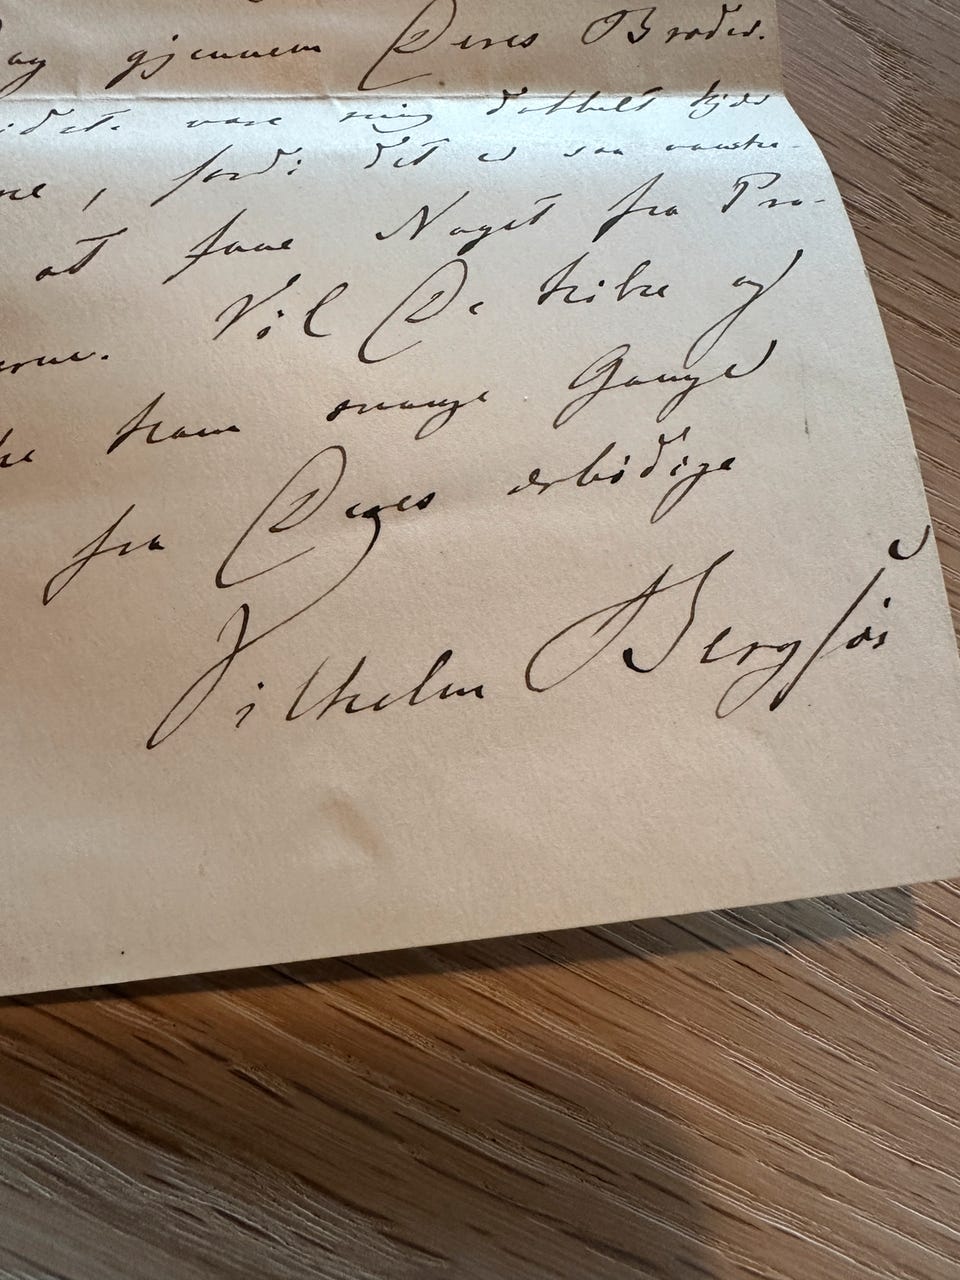 gjennem Deres Broder.
være mig dobbelt kjær
, fordi det er saa vanske-
at faae Noget fra Pro-
Vil De hilse og
ham mange Gange
fra Deres ærbødige
Vilhelm Bergsøe